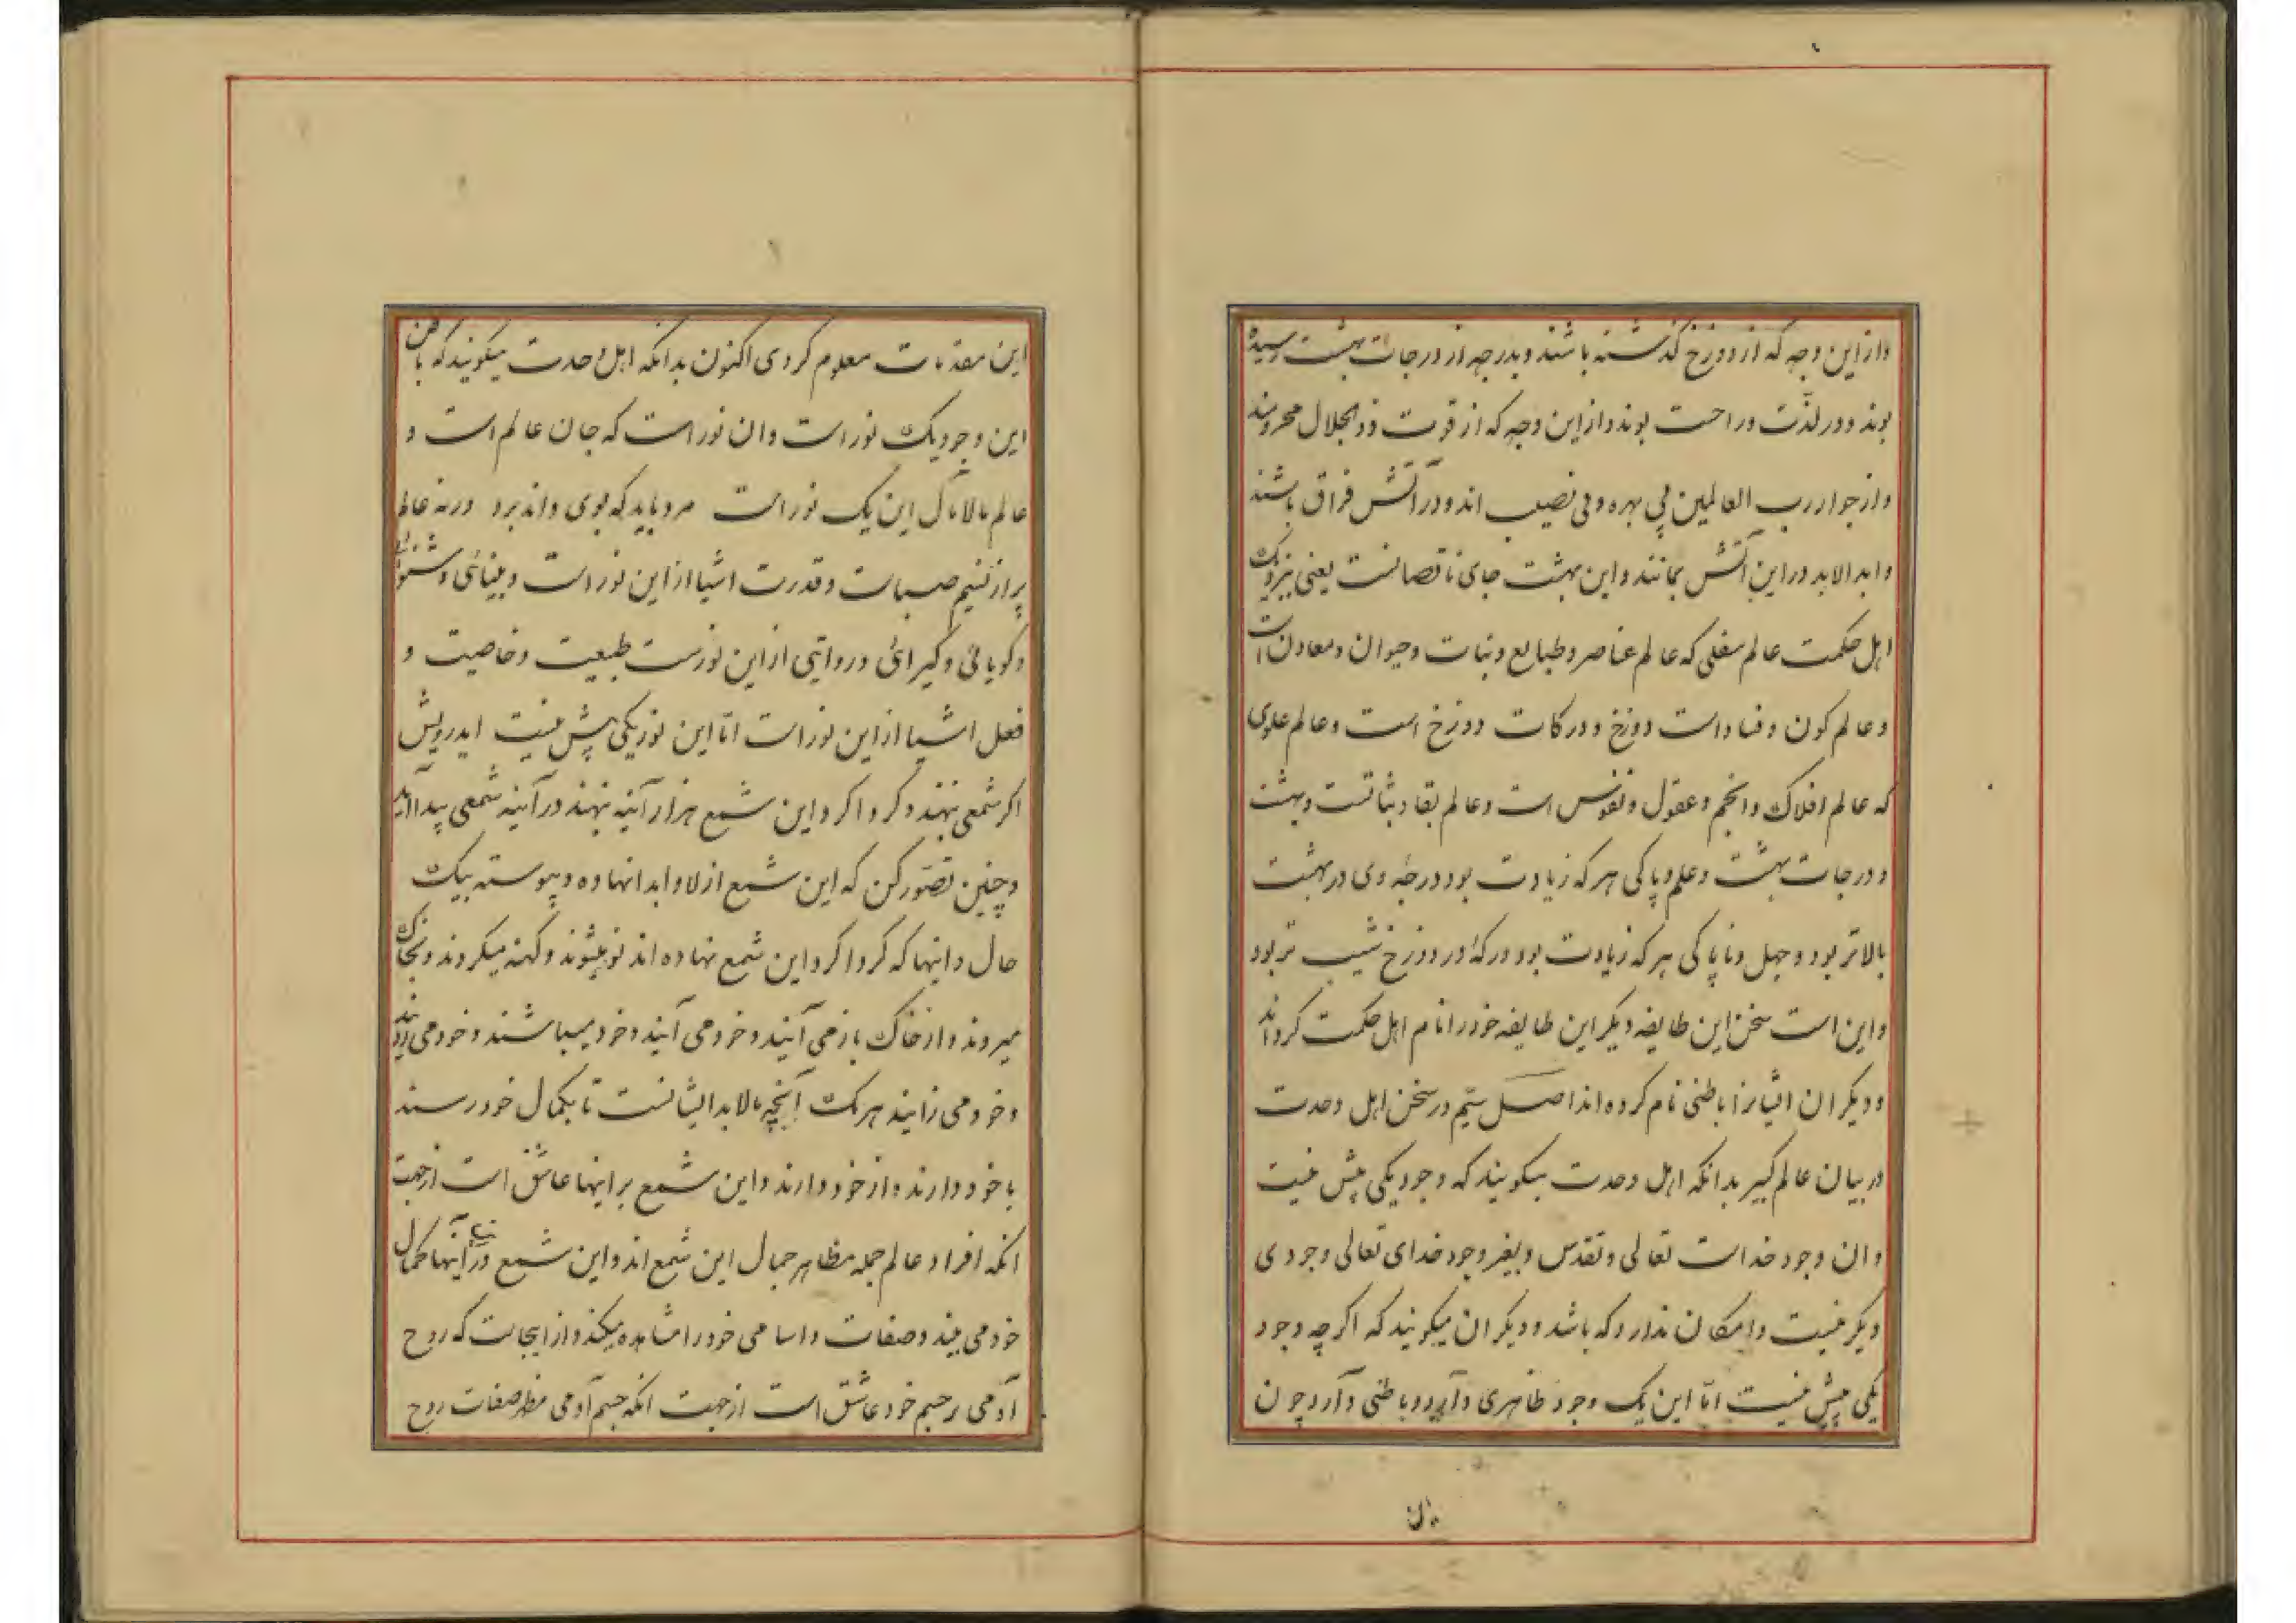 وازاین وجه که از دوزخ کذشته باشند و بدرجه از درجات بهشت رسیده
بوند و در لذّت و راحت بوند و ازاین وجه که از قربت ذوالجلال محروم‌اند
و از جوار رب العالمین بی بهره و بی نصیب اند و در آتش فراق باشند
و ابد الاباد دراین آتش بمانند و این بهشت جای ناقصانست یعنی بنزدیک
اهل حکمت عالم سفلی که عالم عناصر و طبایع و نبات و حیوان و معادن است
و عالم کون و فساد است دوزخ و درکات دوزخ است و عالم علوی
که عالم افلاک و انجم و عقول و نفوس است و عالم بقا و ثباتست و بهشت
و درجات بهشت و علم و پاکی هر که زیادت بود درجهٔ وی در بهشت
بالاتر بود و جهل و ناپاکی هر که زیادت بود درکهٔ او در دوزخ شیب تر بود
و این است سخن این طایفه دیکر این طایفه خود را نام اهل حکمت کرده‌اند
و دیکران ایشانرا باطنی نام کرده اند اصل سیّم در سخن اهل وحدت
در بیان عالم کبیر بدانکه اهل وحدت میکویند که وجود یکی بیش نیست
و ان وجود خداست تعالی و تقدس و بغیر وجود خدای تعالی وجودی
دیکر نیست و امکان ندارد که باشد و دیکران میکویند که اکرچه وجود
یکی بیش نیست امّا این یک وجود ظاهری دارد و باطنی دارد چون
این مقدمات معلوم کردی اکنون بدانکه اهل وحدت میکویند که باطن
این وجود یک نور است و ان نور است که جان عالم است و
عالم مالامال این یک نور است مرد باید که بوی داند برد ورنه عالم
پر از نسیم صباست و قدرت اشیا از این نور است و بینائی و شنوائی
و کویائی و کیرائی و روایی از این نورست طبیعت و خاصیت و
فعل اشیا از این نور است امّا این نور یکی بیش نیست ایدرویش
اکر شمعی بنهند و کرداکرد این شمع هزار آینه بنهند در آینه شمعی پیدا آید
و چنین تصوّر کن که این شمع ازلا و ابدا نهاده و پیوسته بیک
حال و اینها که کرداکرد این شمع نهاده اند نو میشوند و کهنه میکردند و بخاک
میروند و از خاک باز می آیند و خود می آیند و خود میباشند و خود می روند
و خود می زایند هریک آنچه مالابد ایشانست تا بکمال خود رسند
با خود دارند و از خود دارند و این شمع بر اینها عاشق است از جهت
انکه افراد عالم جمله مظاهر جمال این شمع اند و این شمع در این آینها جمال
خود می بیند و صفات و اسامی خود را مشاهده میکند و از اینجاست که روح
آدمی بر جسم خود عاشق است از جهت انکه جسم آدمی مظهر صفات روح